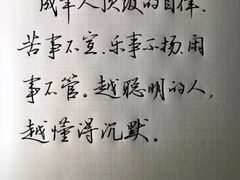 成年人顶级的自律、
苦事不宣、乐事不扬、闲
事不管。越聪明的人，
越懂得沉默。